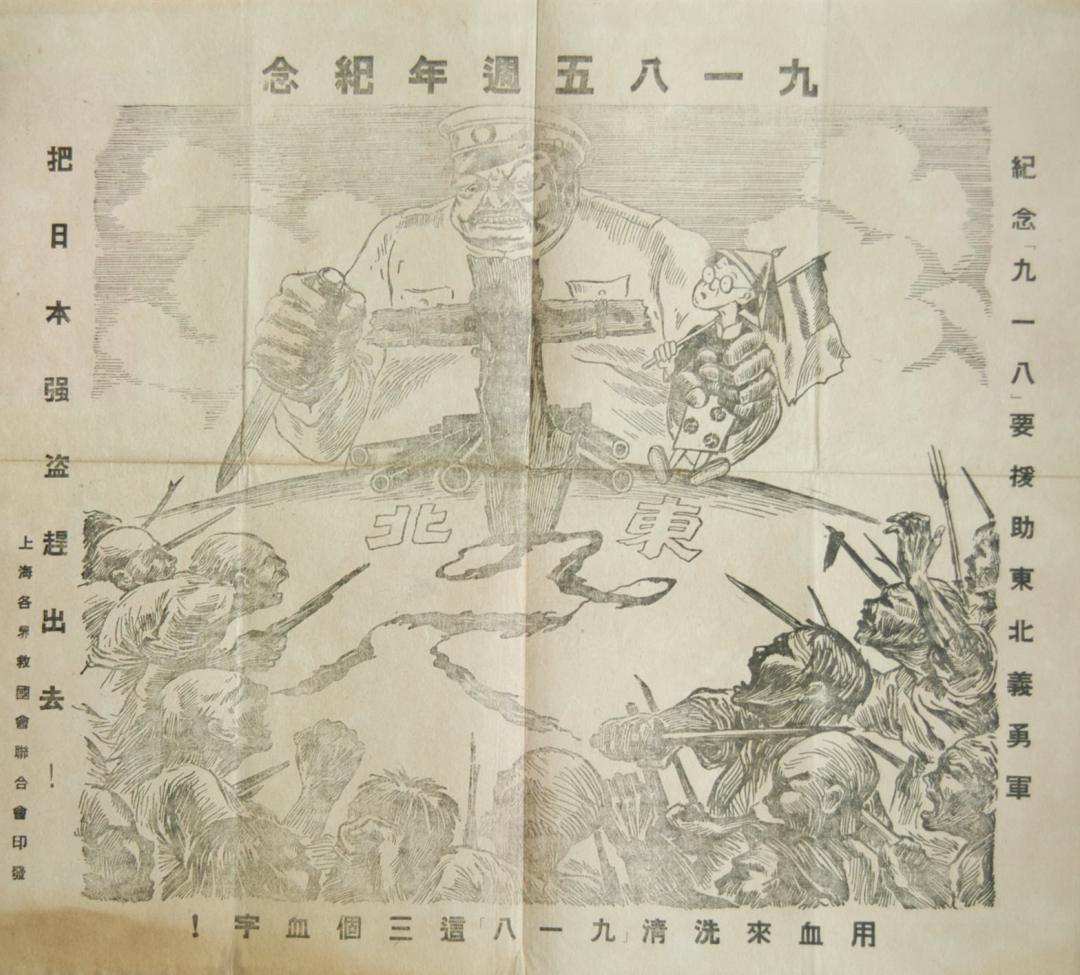 九一八五週年紀念
紀念「九一八」要援助東北義勇軍
東北
把日本强盗趕出去！
用血來洗清「九一八」這三個血字！
上海各界救國會聯合會印發